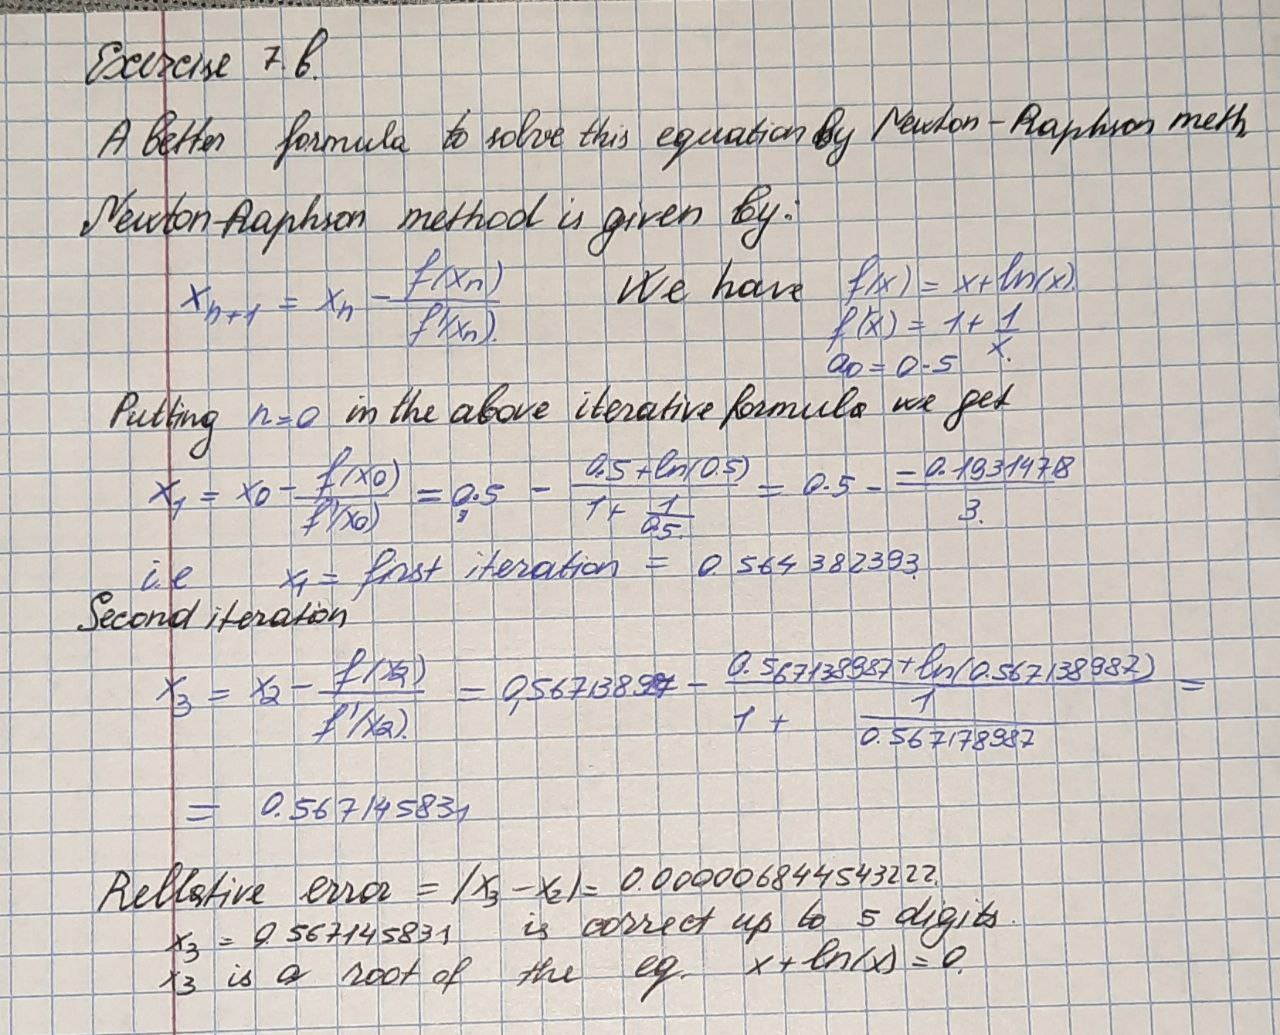 Exercise 7.b.
A better formula to solve this equation by Newton-Raphson meth
Newton-Raphson method is given by:
x_{n+1} = x_n - f(x_n) / f'(x_n). We have f(x) = x+ln(x)
f'(x) = 1 + 1/x.
a_0 = 0.5
Putting n=0 in the above iterative formula we get
x_1 = x_0 - f(x_0) / f'(x_0) = 0.5 - (0.5+ln(0.5)) / (1 + 1/0.5.) = 0.5 - (-0.1931478) / 3.
i.e x_1 = first iteration = 0.564382393.
Second iteration
x_3 = x_2 - f(x_2) / f'(x_2). = 0,567138987 - (0.567138987+ln(0.567138987)) / (1 + 1/0.567178987) =
= 0.567145831
Rellative error = |x_3 - x_2| = 0.000006844543222.
x_3 = 0.567145831 is correct up to 5 digits.
x_3 is a root of the eq. x+ln(x)=0.